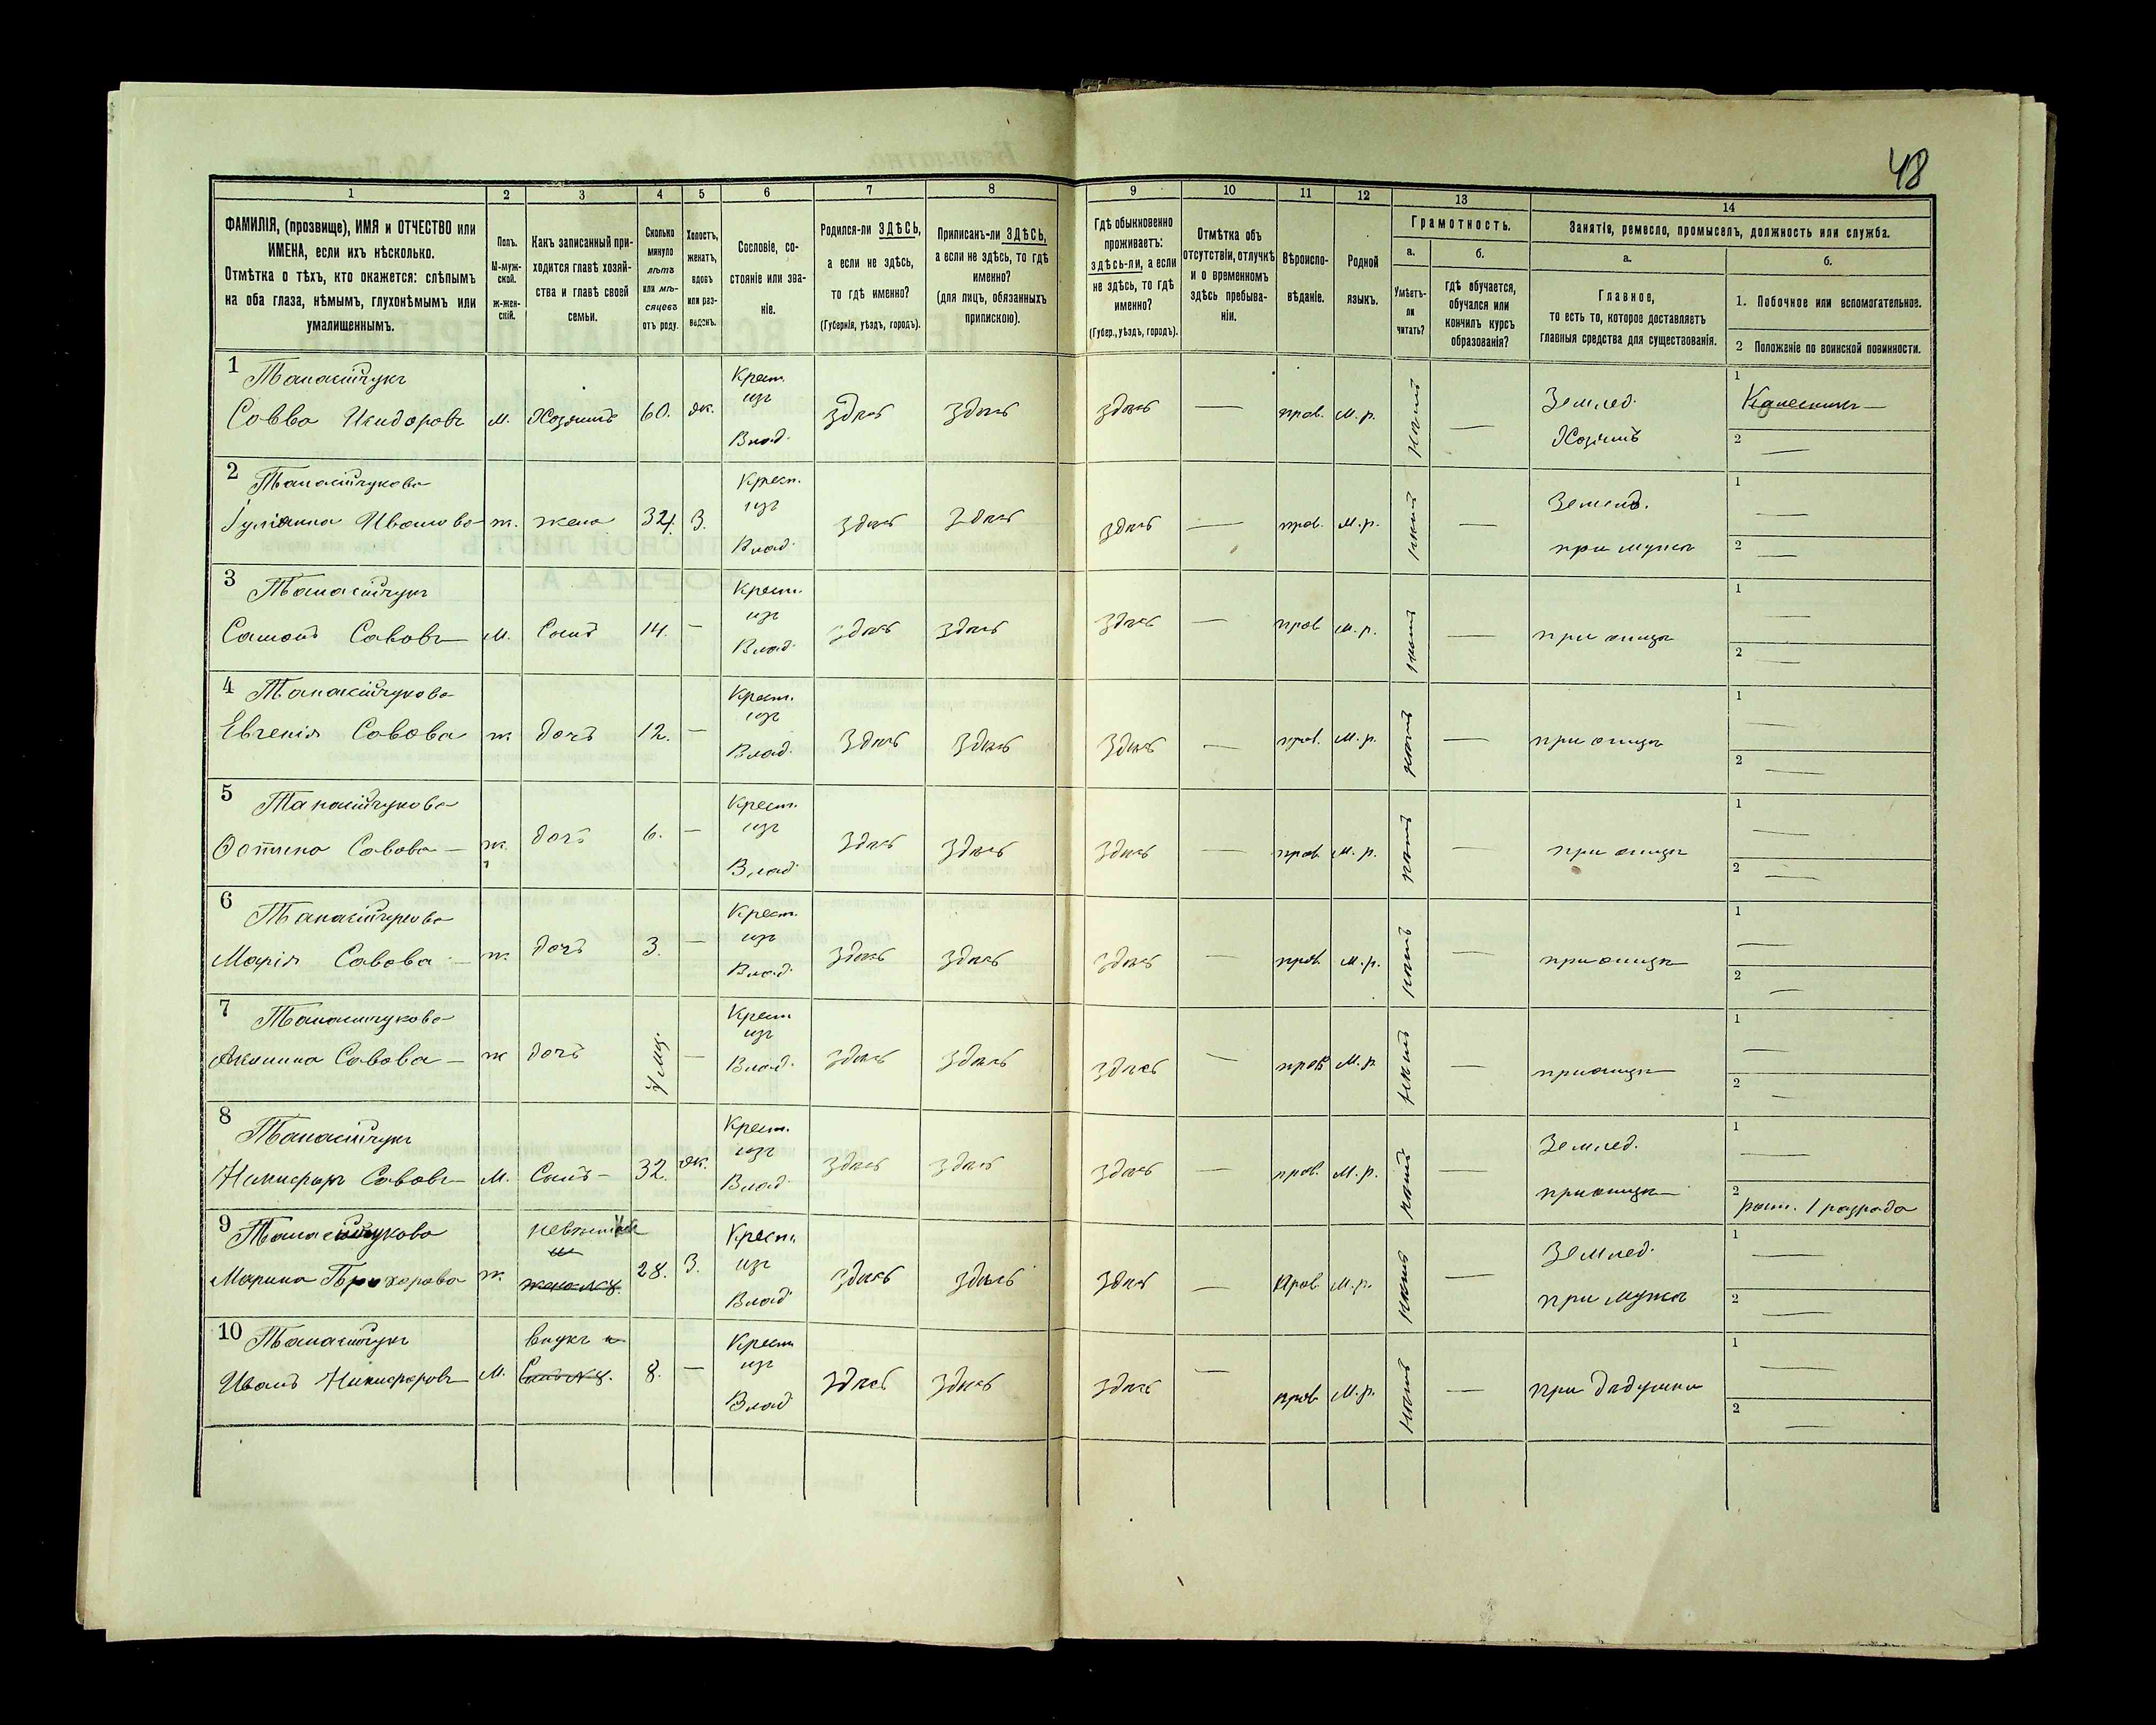 48
1 2 3 4 5 6 7 8 9 10 11 12 13 14
ФАМИЛІЯ, (прозвище), ИМЯ и ОТЧЕСТВО или
ИМЕНА, если ихъ нѣсколько.
Отмѣтка о тѣхъ, кто окажется: слѣпымъ
на оба глаза, нѣмымъ, глухонѣмымъ или
умалишеннымъ.
Полъ.
М-муж-
ской.
ж-жен-
скій.
Какъ записанный при-
ходится главѣ хозяй-
ства и главѣ своей
семьи.
Сколько
минуло
лѣтъ
или мѣ-
сяцевъ
отъ роду.
Холостъ,
женатъ,
вдовъ
или раз-
веденъ.
Сословіе, со-
стояніе или зва-
ніе.
Родился-ли ЗДѢСЬ,
а если не здѣсь,
то гдѣ именно?
(Губернія, уѣздъ, городъ).
Приписанъ-ли ЗДѢСЬ,
а если не здѣсь, то гдѣ
именно?
(для лицъ, обязанныхъ
припискою).
Гдѣ обыкновенно
проживаетъ:
здѣсь-ли, а если
не здѣсь, то гдѣ
именно?
(Губер., уѣздъ, городъ).
Отмѣтка объ
отсутствіи, отлучкѣ
и о временномъ
здѣсь пребыва-
ніи.
Вѣроиспо-
вѣданіе.
Родной
языкъ.
Грамотность.
а.
Умѣетъ-
ли
читать?
б.
гдѣ обучается,
обучался или
кончилъ курсъ
образованія?
Занятія, ремесло, промыселъ, должность или служба.
а.
Главное,
то есть то, которое доставляетъ
главныя средства для существованія.
б.
1. Побочное или вспомогательное.
2 Положеніе по воинской повинности.
1 Танасійчукъ Крест. 1
Савва Исидоровъ м. Хозяинъ 60. ж. изъ Влад. здѣсь здѣсь здѣсь — прав. м.р. — Землед. Хозяинъ 2 —
2 Танасійчукова Крест. 1 —
Іуліанна Иванова ж. жена 32. З. изъ Влад. здѣсь здѣсь здѣсь — прав. м.р. — Землед. при мужѣ 2 —
3 Танасійчукъ Крест. 1 —
Самонъ Савовъ м. Сынъ 14. — изъ Влад. здѣсь здѣсь здѣсь — прав м.р. — при отцѣ 2 —
4 Танасійчукова Крест. 1 —
Евгенія Савова ж дочь 12. — изъ Влад. здѣсь здѣсь здѣсь — прав. м.р. — при отцѣ 2 —
5 Танасійчукова Крест. 1 —
Фотина Савова ж. дочь 6. — изъ Влад. здѣсь здѣсь здѣсь — прав. м.р. — при отцѣ 2 —
6 Танасійчукова Крест. 1 —
Марія Савова ж. дочь 3. — изъ Влад. здѣсь здѣсь здѣсь — прав. м.р. — при отцѣ 2 —
7 Танасійчукова Крест 1 —
Акилина Савова ж дочь — изъ Влад. здѣсь здѣсь здѣсь — прав м.р. — при отцѣ 2 —
8 Танасійчукъ Крест. 1 —
Никифоръ Савовъ м. Сынъ 32. ж. изъ Влад. здѣсь здѣсь здѣсь — прав. м.р. — Землед. при отцѣ 2 рат. 1 разряда
9 Танасійчукова невѣстка Крест. 1 —
Марина Прохорова ж. жена №8. 28. З. изъ Влад здѣсь здѣсь здѣсь — Прав. м.р. — Землед. при мужѣ 2 —
10 Танасійчукъ внукъ Крест 1 —
Иванъ Никифоровъ м. Сынъ №8. 8. — изъ Влад здѣсь здѣсь здѣсь — прав м.р. — при дедушки 2 —